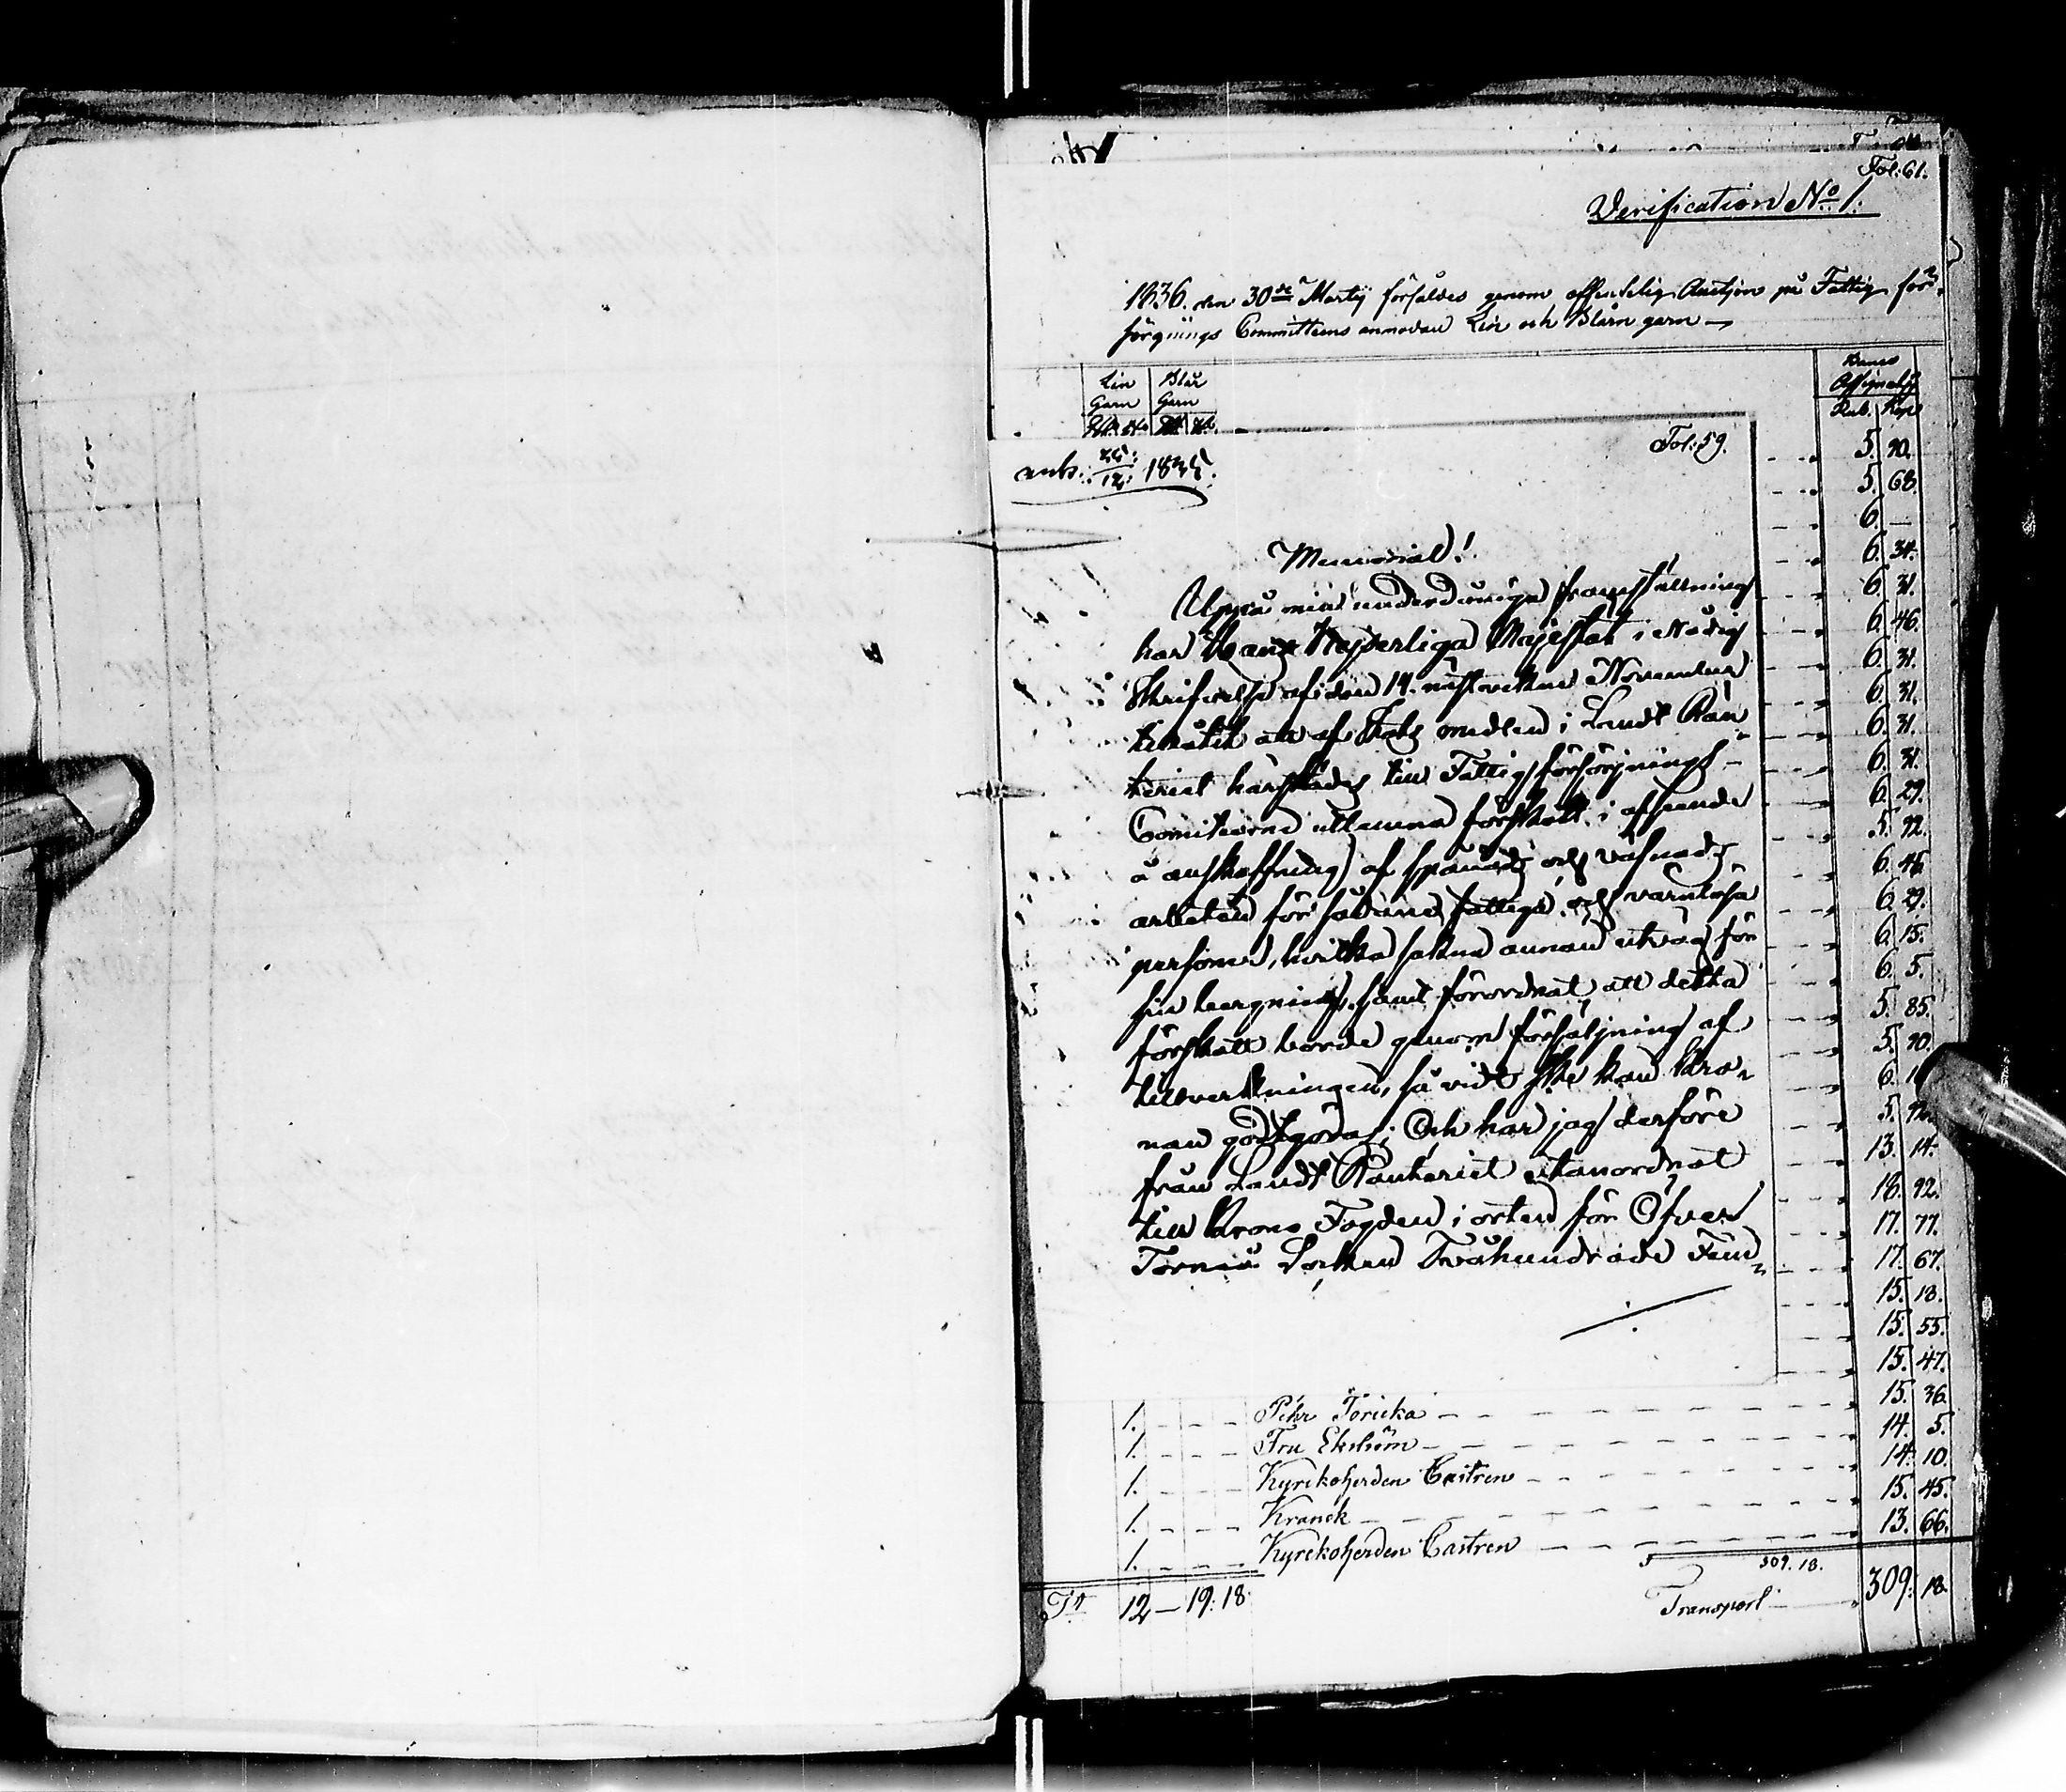 Fol: 61.
Verification No 1.
1836. den 30de Martij försåldes genom offentelig Auction på Fattig för-
sörgnings Committeens anmodan Lin och Blårn garn —
Lin Garn
Blår Garn
Banco Assignat
Rub. Kop
Fol: 59.
ank: 24/12: 1835.
Memorial!
Uppå min underdåniga framställning
har Hans Kejserliga Majestät i Nådig
Skrifvelse af den 14. nästvekne November
tillåtit att af Stats medlen i Landt Rän-
teriet härstädes till Fattigförsörjnings-
Comiteerne utlemna förskott i afseende
å anskaffning af spånads och väfnads
arbeten för sådane fattige och värnlösa
personer, hvilka sakna annan utväg för
sin bergning, samt förordnat att detta
förskott borde genom försäljning af
tillverkningen, så vidt ske kan Kro-
nan godtgöras; Och har jag derföre
från Landt Ränteriet utanordnat
till Krono Fogden i orten för Öfver
Torneå Socken Tvåhundrade Fem-
5. 90.
5. 68.
6. —
6. 34.
6. 31.
6. 46.
6. 31.
6. 31.
6. 31.
6. 31.
6. 29.
5. 92.
6. 46.
6. 29.
6. 15.
6. 5.
5. 85.
5. 90.
6.
5.
13. 14.
18. 92.
17. 77.
17. 67.
15. 18.
15. 55.
15. 47.
15. 36.
1. Pehr Föricka 14. 5.
1. Fru Ekström 14. 10.
1. Kyrkoherden Castren 15. 45.
1. Kranck 13. 66.
1. Kyrkoherden Castren
309. 18.
Tt 12 — 19. 18. Transport 309. 18.